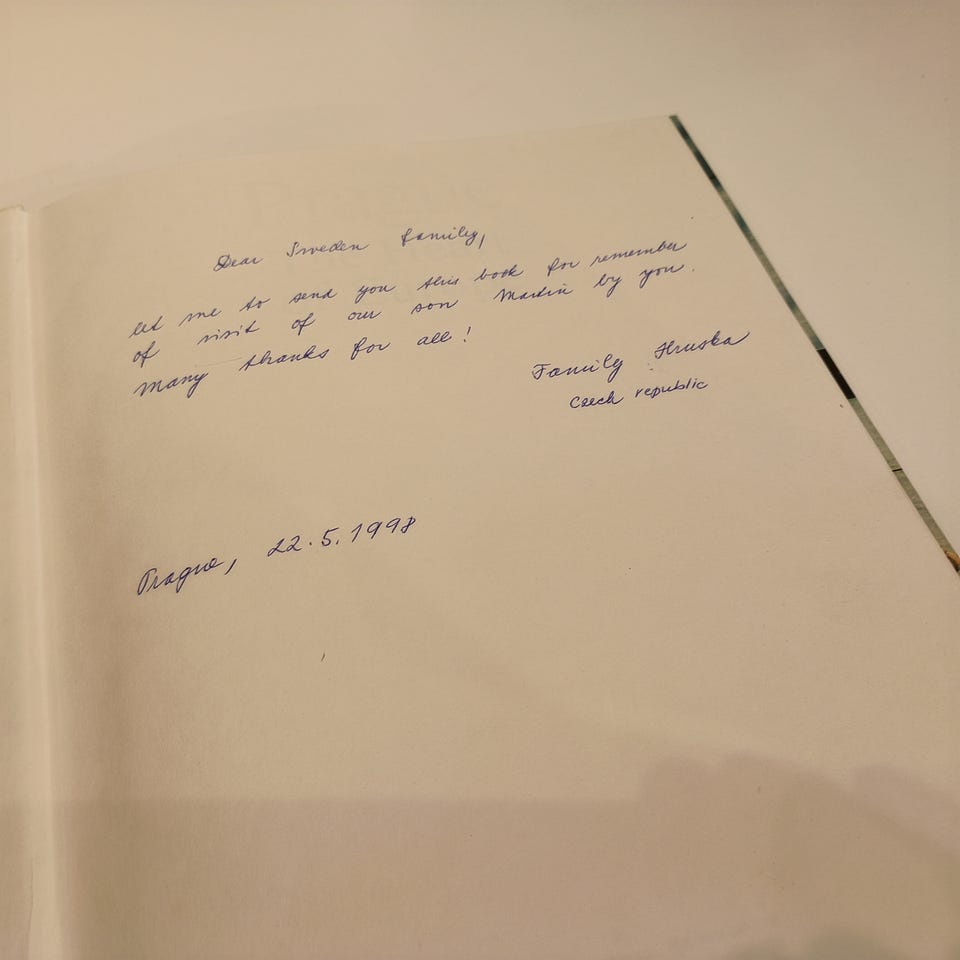 Dear Sweden family,
let me to send you this book for remember
of visit of our son Martin by you.
Many thanks for all!
Family Hruska
Czech republic
Prague, 22.5.1998